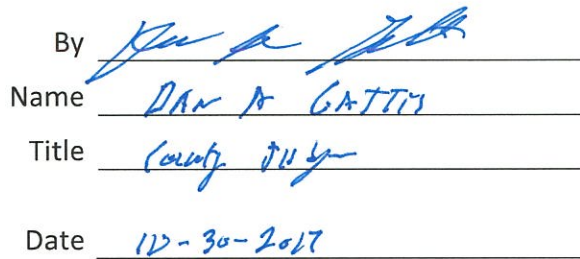 By
Name DAN A GATTIS
Title County Judge
Date 10-30-2017